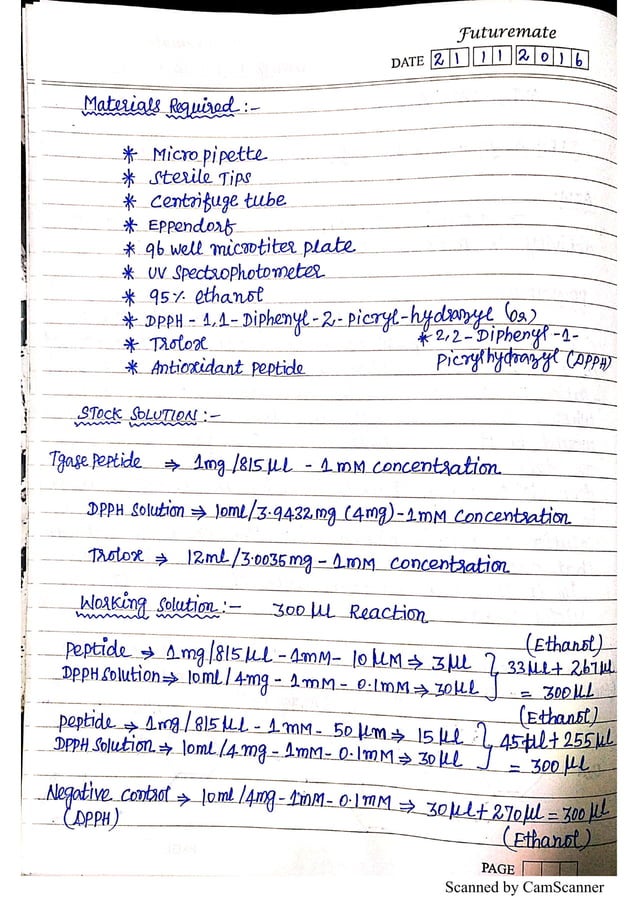 Futuremate
DATE 21 11 2016
Materials Required :-
* Micropipette
* Sterile Tips
* Centrifuge tube
* Eppendorf
* 96 well microtiter plate
* UV Spectrophotometer
* 95% ethanol
* DPPH - 1,1-Diphenyl-2-Picryl-hydrazyl (or)
* 2,2-Diphenyl-1-
Picrylhydrazyl (DPPH)
* Trolox
* Antioxidant Peptide
STOCK SOLUTION :-
Tgase Peptide ⇒ 1mg/815µl - 1mM concentration
DPPH Solution ⇒ 10ml/3.9432mg (4mg)-1mM Concentration
Trolox ⇒ 12ml/3.0035mg - 1mM concentration
Working Solution :- 300µl Reaction
(Ethanol)
Peptide → 1mg/815µl - 1mM - 10µM ⇒ 3µl } 33µl + 267µl
DPPH Solution ⇒ 10ml/4mg - 1mM - 0.1mM ⇒ 30µl = 300µl
(Ethanol)
Peptide → 1mg/815µl - 1mM - 50µm ⇒ 15µl } 45µl + 255µl
DPPH Solution → 10ml/4mg - 1mM - 0.1mM ⇒ 30µl = 300µl
Negative Control → 10ml/4mg - 1mM - 0.1mM ⇒ 30µl + 270µl = 300µl
(DPPH) (Ethanol)
PAGE
Scanned by CamScanner